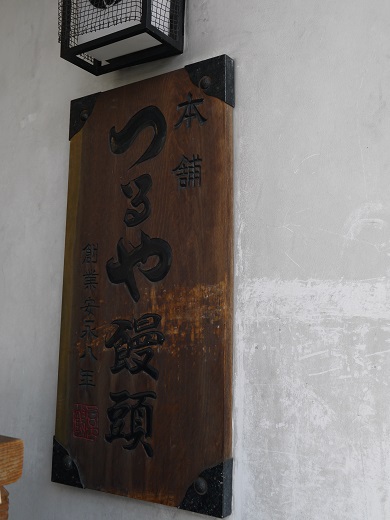 本舗
つるや饅頭
創業安永八年